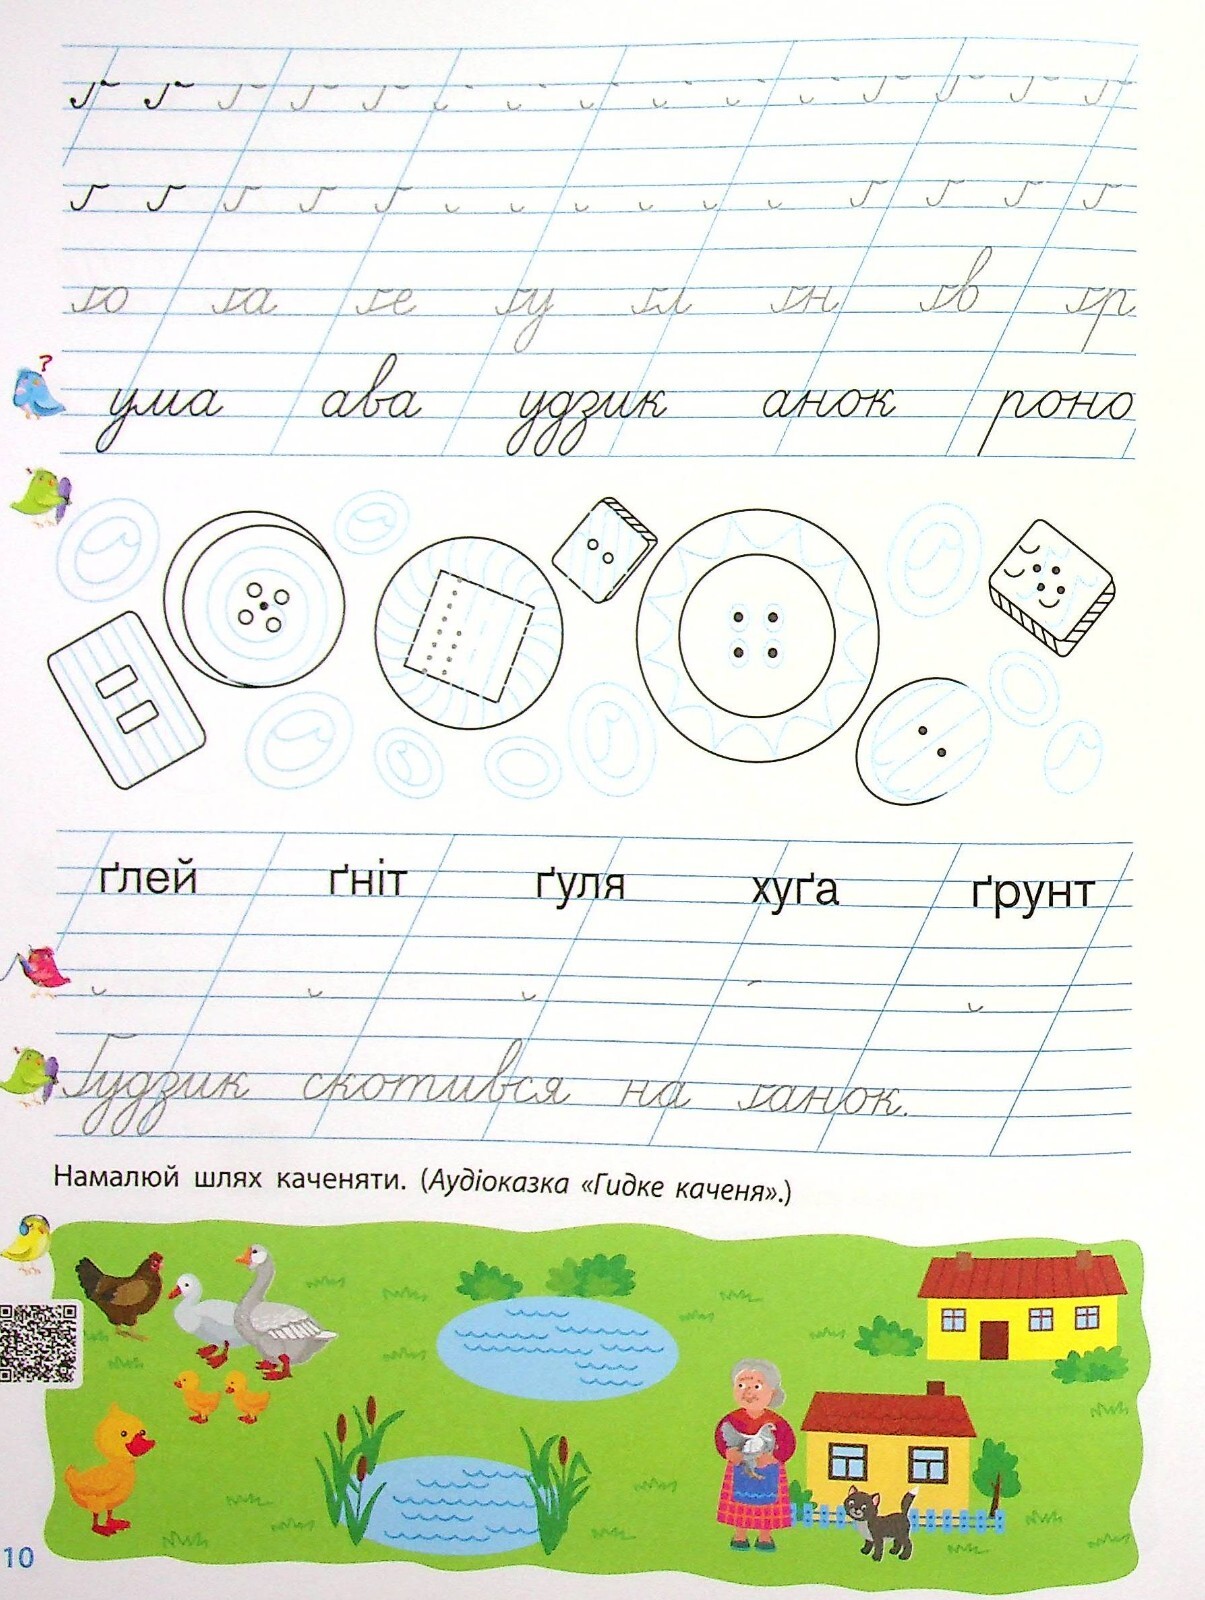 ґ ґ ґ ґ ґ ґ ґ ґ ґ
ґ ґ ґ ґ ґ ґ ґ ґ ґ
ґо ґа ґе ґу ґл ґн ґв ґр
? ума ава удзик анок роно
ґлей ґніт ґуля хуґа ґрунт
Ґудзик скотився на ґанок.
Намалюй шлях каченяти. (Аудіоказка «Гидке каченя».)
10